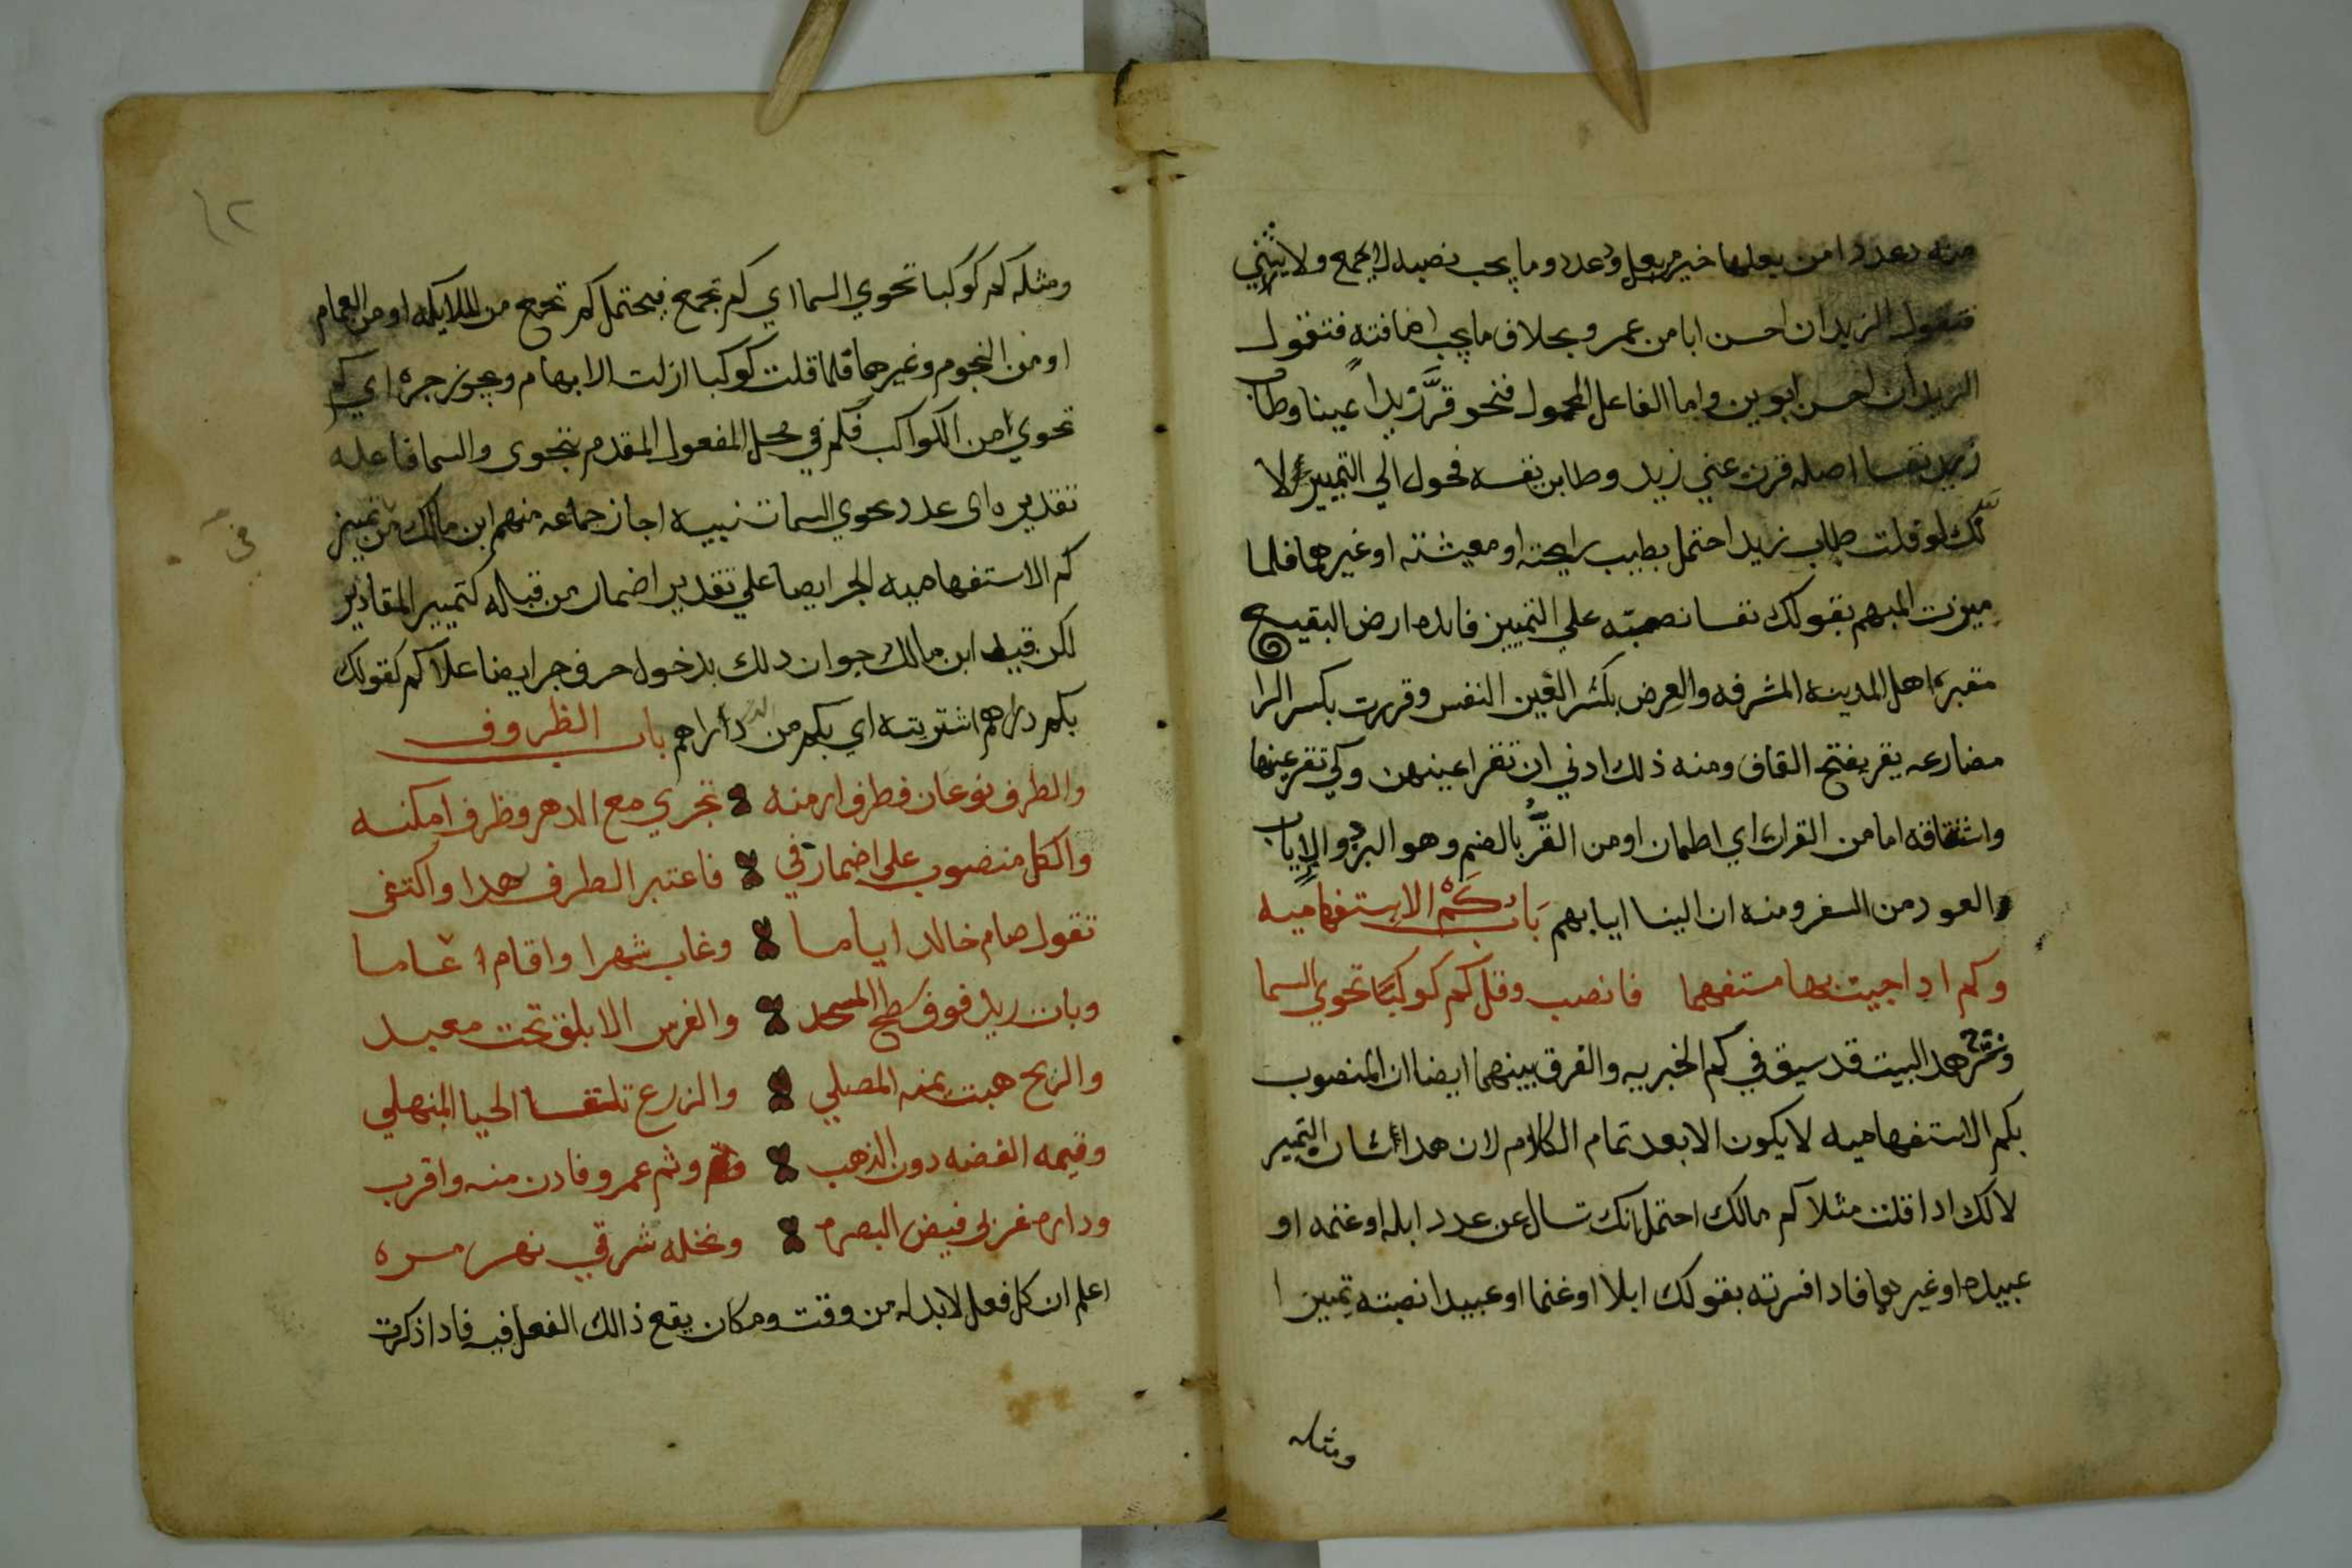 منه دعددا من بعلها خير من بعل وعدد وما يجب نصبه لا يجمع ولا يثني
فتقول الزيدان احسن ابا من عمرو بخلاف ما يجب اضافته فتقول
الزيدان احسن ابوين واما الفاعل المحمول فنحو قرَّ زيدا عينا وطاب
زيد نفسا اصله قرت عيني زيد وطابن نفسه فحول الي التمييز لا
نّك لو قلت طاب زيد احتمل بطيب رايحته او معيشته او غيرهما فلما
ميزت المبهم بقولك نفسا نصبته علي التمييز فايده ارض البقيع
مقبرة اهل المدينه المشرفه والعِرض بكسر العين النفس وقررت بكسر الرا
مضارعه يقر بفتح القاف ومنه ذلك ادني ان تقر اعينهن وكي تقر عينها
واشتقاقه اما من القرار اي اطمان او من القُرّ بالضم وهو البرد والاياب
العود من السفر ومنه ان الينا ايابهم بَاب كَمْ الاستفهاميه
وكم ادا جيت بها مستفهما فانصب وقل كم كوكبًا تحوي السما
وشرح هدا البيت قد سبق في كم الخبريه والفرق بينهما ايضا ان المنصوب
بكم الاستفهاميه لا يكون الا بعد تمام الكلام لان هدا شان التمييز
لانك ادا قلت مثلا كم مالك احتمل انك تسال عن عدد ابله او غنمه او
عبيده او غيرهما فادا فسرته بقولك ابلا او غنما او عبيدا نصبته تمييزا
ومثله
١٢
ومثله كم كوكبا تحوي السما اي كم تجمع فيحتمل كم تجمع من الملايكه او من الغمام
او من النجوم وغيرهما فلما قلت كوكبا ازلت الابهام ويجوز جره اي كم
تحوي من الكواكب فكم في محل المفعول المقدم بتحوي والسما فاعله
تقديره اي عدد تحوي السما تنبيه اجاز جماعه منهم ابن مالك في تمييز
كم الاستفهاميه الجر ايضا علي تقدير اضمار من قباله كتمييز المقادير
لكن قيد ابن مالك جواز دلك بدخول حرف جر ايضا علا كم كقولك
بكم دراهم اشتريته اي بكم من الدراهم باب الظروف
في
والظرف نوعان فظرف ازمنه تجري مع الدهر وظرف امكنه
والكل منصوب على اضمار في فاعتبر الظرف بهدا واكتفى
تقول صام خالد اياما وغاب شهرا واقام عاما
وبات زيد فوق سطح المسجد والفرس الابلق تحت معبد
والريح هبت يمنه المصلي والزرع تلتقا الحيا المنهلي
وقيمه الفضه دون الذهب وثم عمرو فادن منه واقرب
وداره غربي فيض البصره ونخله شرقي نهر مره
اعلم ان كل فعل لابد له من وقت ومكان يقع ذالك الفعل فيه فادا ذكرت